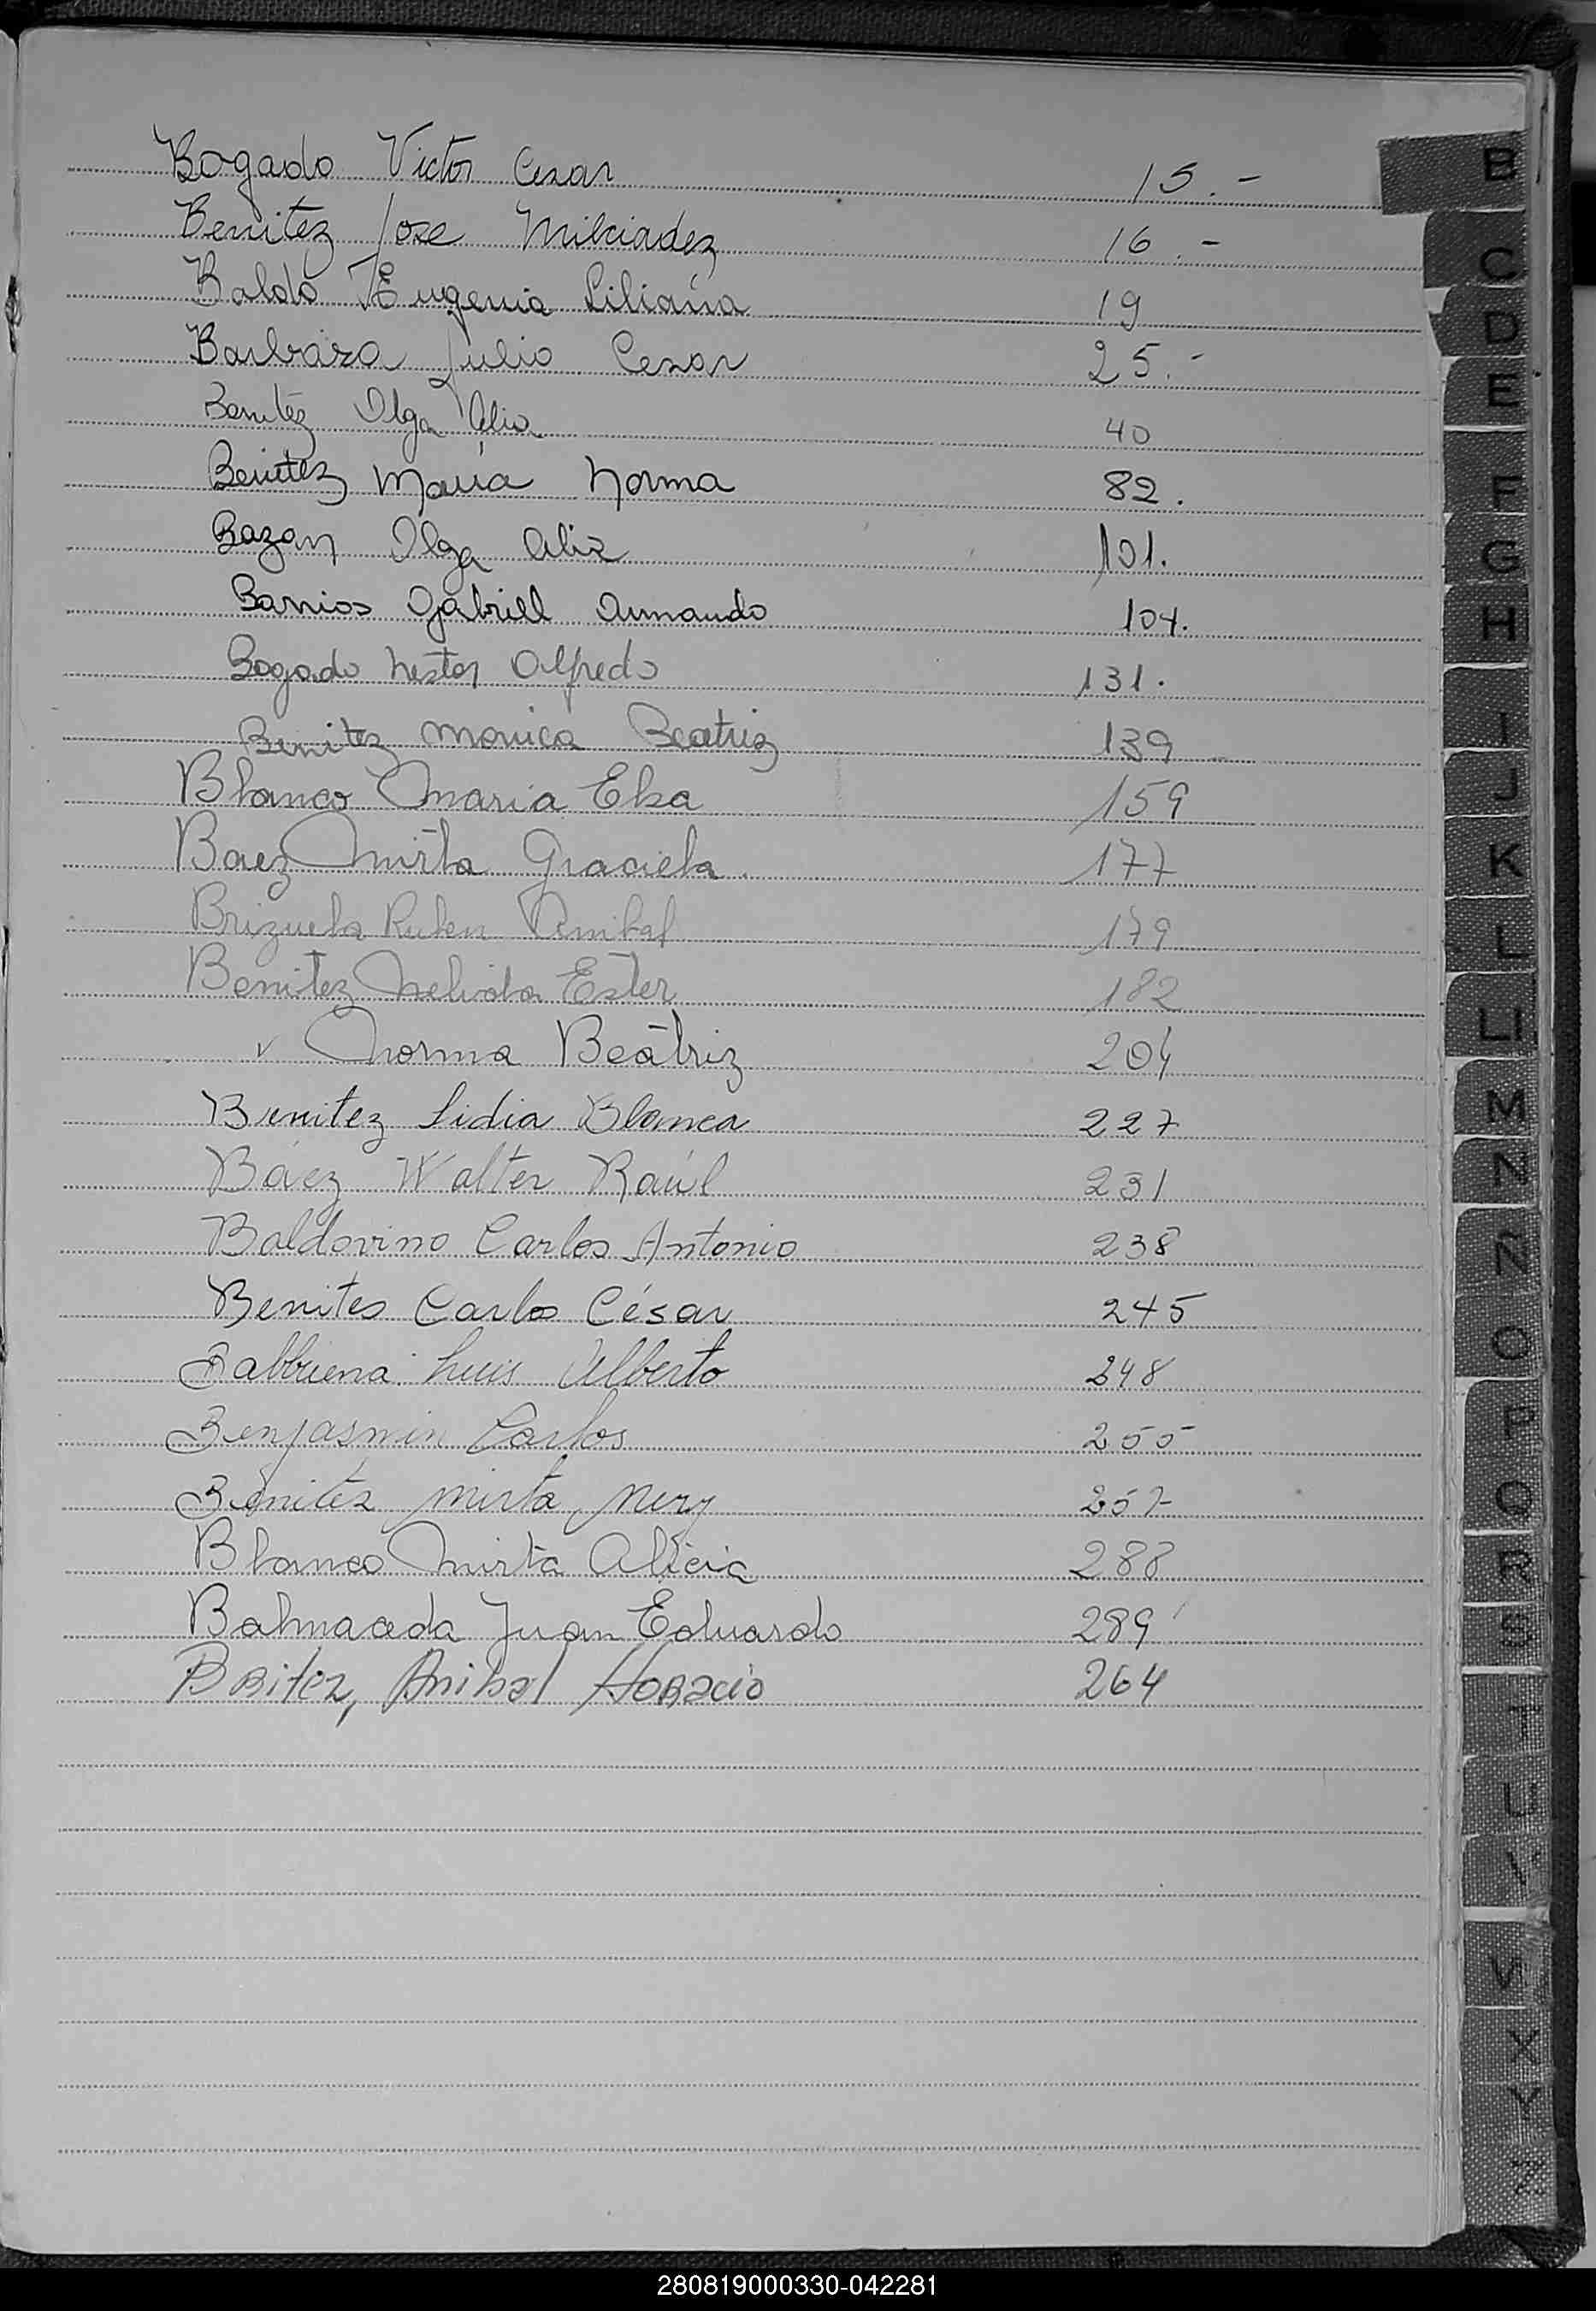 Bogado Victor Cezar 15.-
Benitez Jose Milciadez 16.-
Baldo Eugenia Liliana 19
Barbaro Julio Cezar 25.-
Benitez Olga Alia 40
Benitez Maria Norma 82.
Bazan Olga Alia 101.
Barrios Gabriel Armando 104.
Bogado Nestor Alfredo 131.
Benitez Monica Beatriz 139
Blanco Maria Elsa 159
Baez Mirta Graciela. 177
Brizuela Ruben Anibal 179
Benitez Nelida Ester 182
v Norma Beatriz 204
Benitez Lidia Blanca 227
Báez Walter Raúl 231
Baldovino Carlos Antonio 238
Benites Carlos César 245
Luis Alberto 248
Benjasmin Carlos 255
Benitez Mirta Nery 257
Blanco Mirta Alicia 288
Balmaceda Juan Eduardo 289
Britez, Anibal Horacio 264
B
C
D
E
F
G
H
I
J
K
L
Ll
M
N
Ñ
O
P
Q
R
S
T
U
V
W
X
Y
Z
280819000330-042281